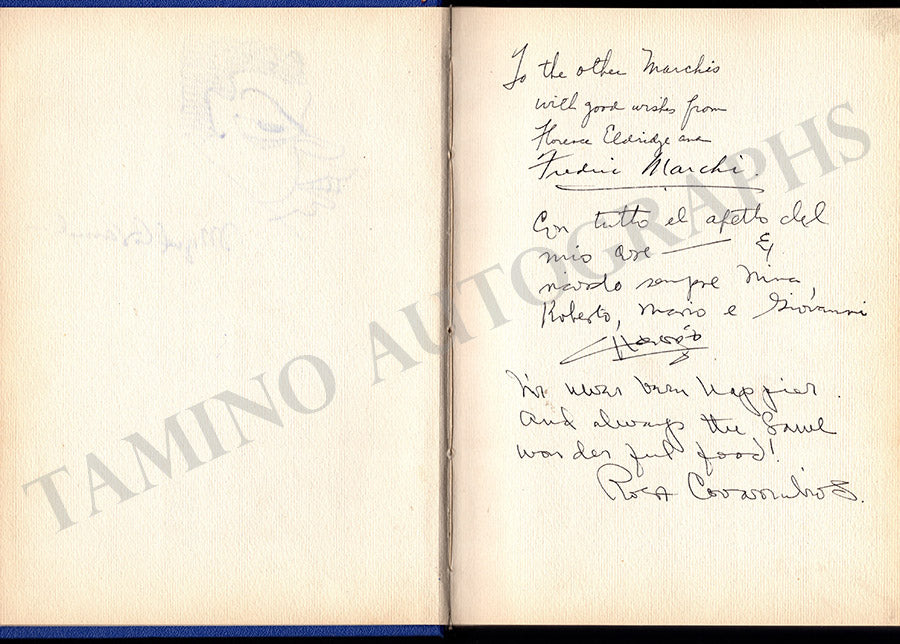 To the other Marchis
with good wishes from
Florence Eldridge and
Fredric Marchi.
Con tutto el afetto del
mio
sempre Nina,
Roberto, Mario e Giovanni
I've never been happier.
And always the same
wonderful food!
Rosa Covarrubias.
TAMINO AUTOGRAPHS